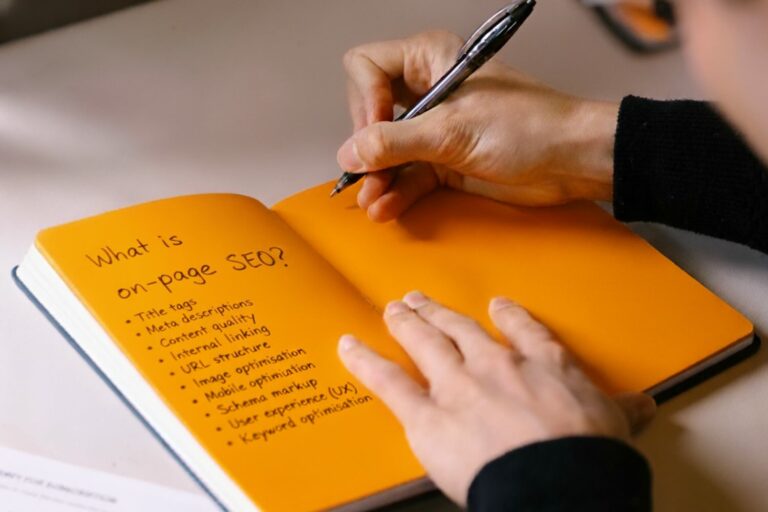 What is
on-page SEO?
• Title tags
• Meta descriptions
• Content quality
• Internal linking
• URL structure
• Image optimisation
• Mobile optimiution
• Schema markup
• User experience (UX)
• Keyword optimisation